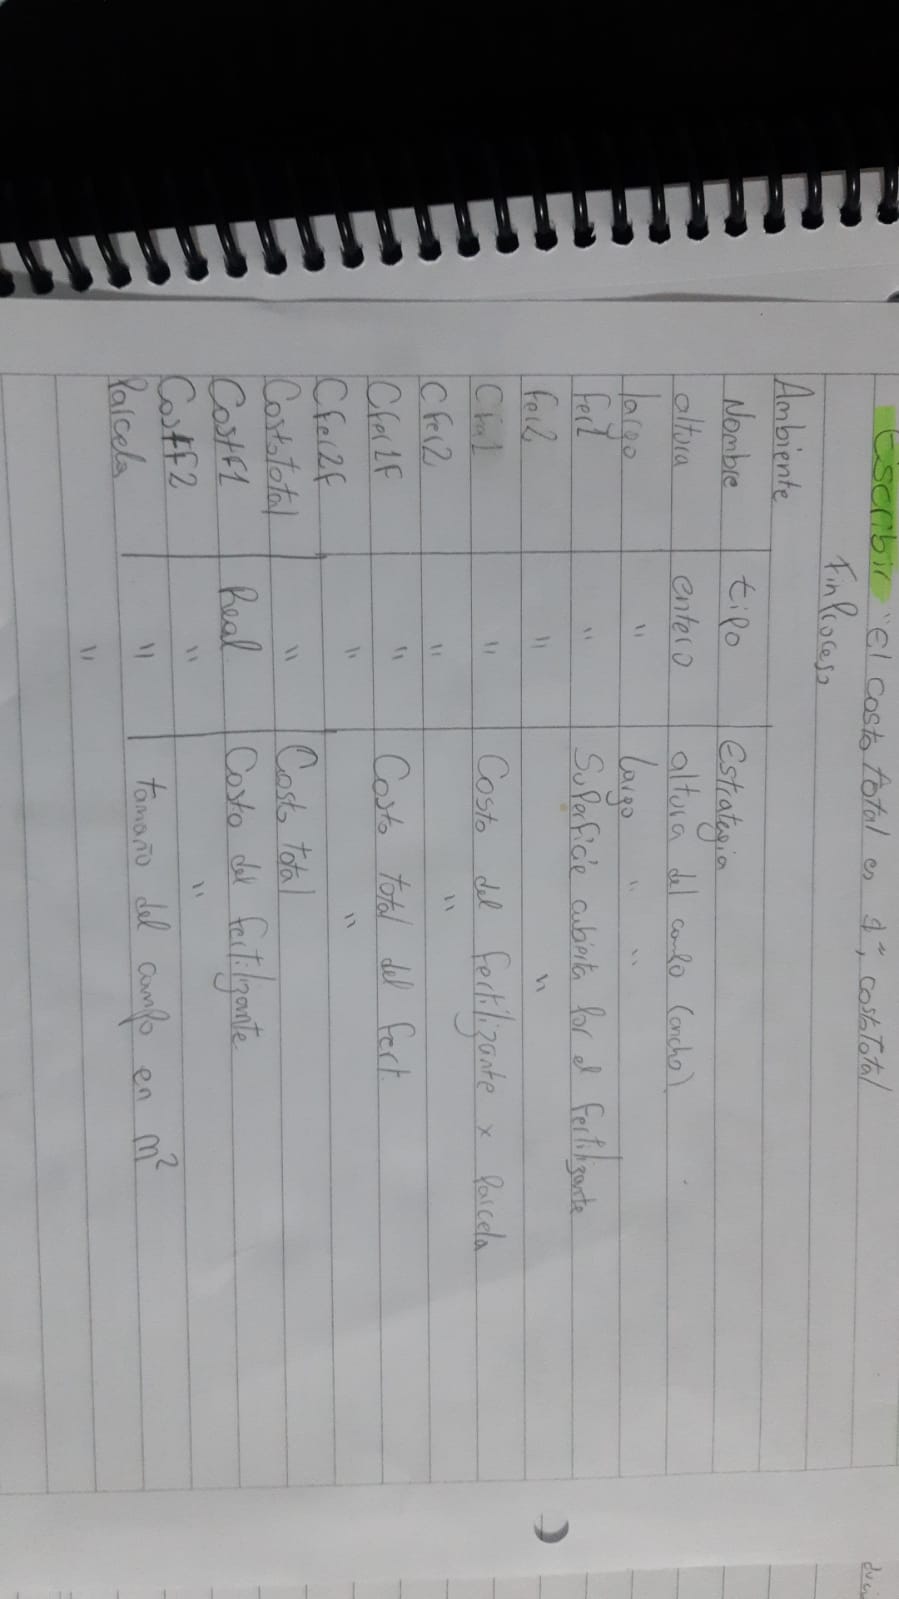 Escribir "El costo total es $", costoTotal
FinProceso
Ambiente
Nombre tipo Estrategia
altura entero altura del campo (ancho)
largo " largo " "
fer1 " Superficie cubierta por el fertilizante
fer2 " "
Cfer1 " Costo del fertilizante x Parcela
Cfer2 " "
Cfer1F " Costo total del fert.
Cfer2F " "
Costototal " Costo total
CostF1 Real Costo del fertilizante.
CostF2 " "
Parcela " tamaño del campo en m²
"